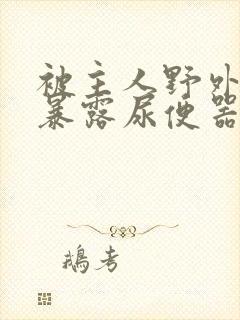 被主人野外
暴露尿便器
鵝考